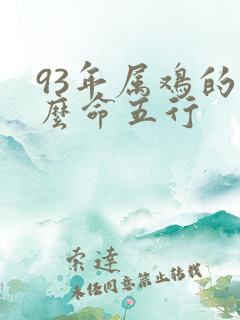 93年属鸡的
麼命五行
索達
未经同意禁止转载